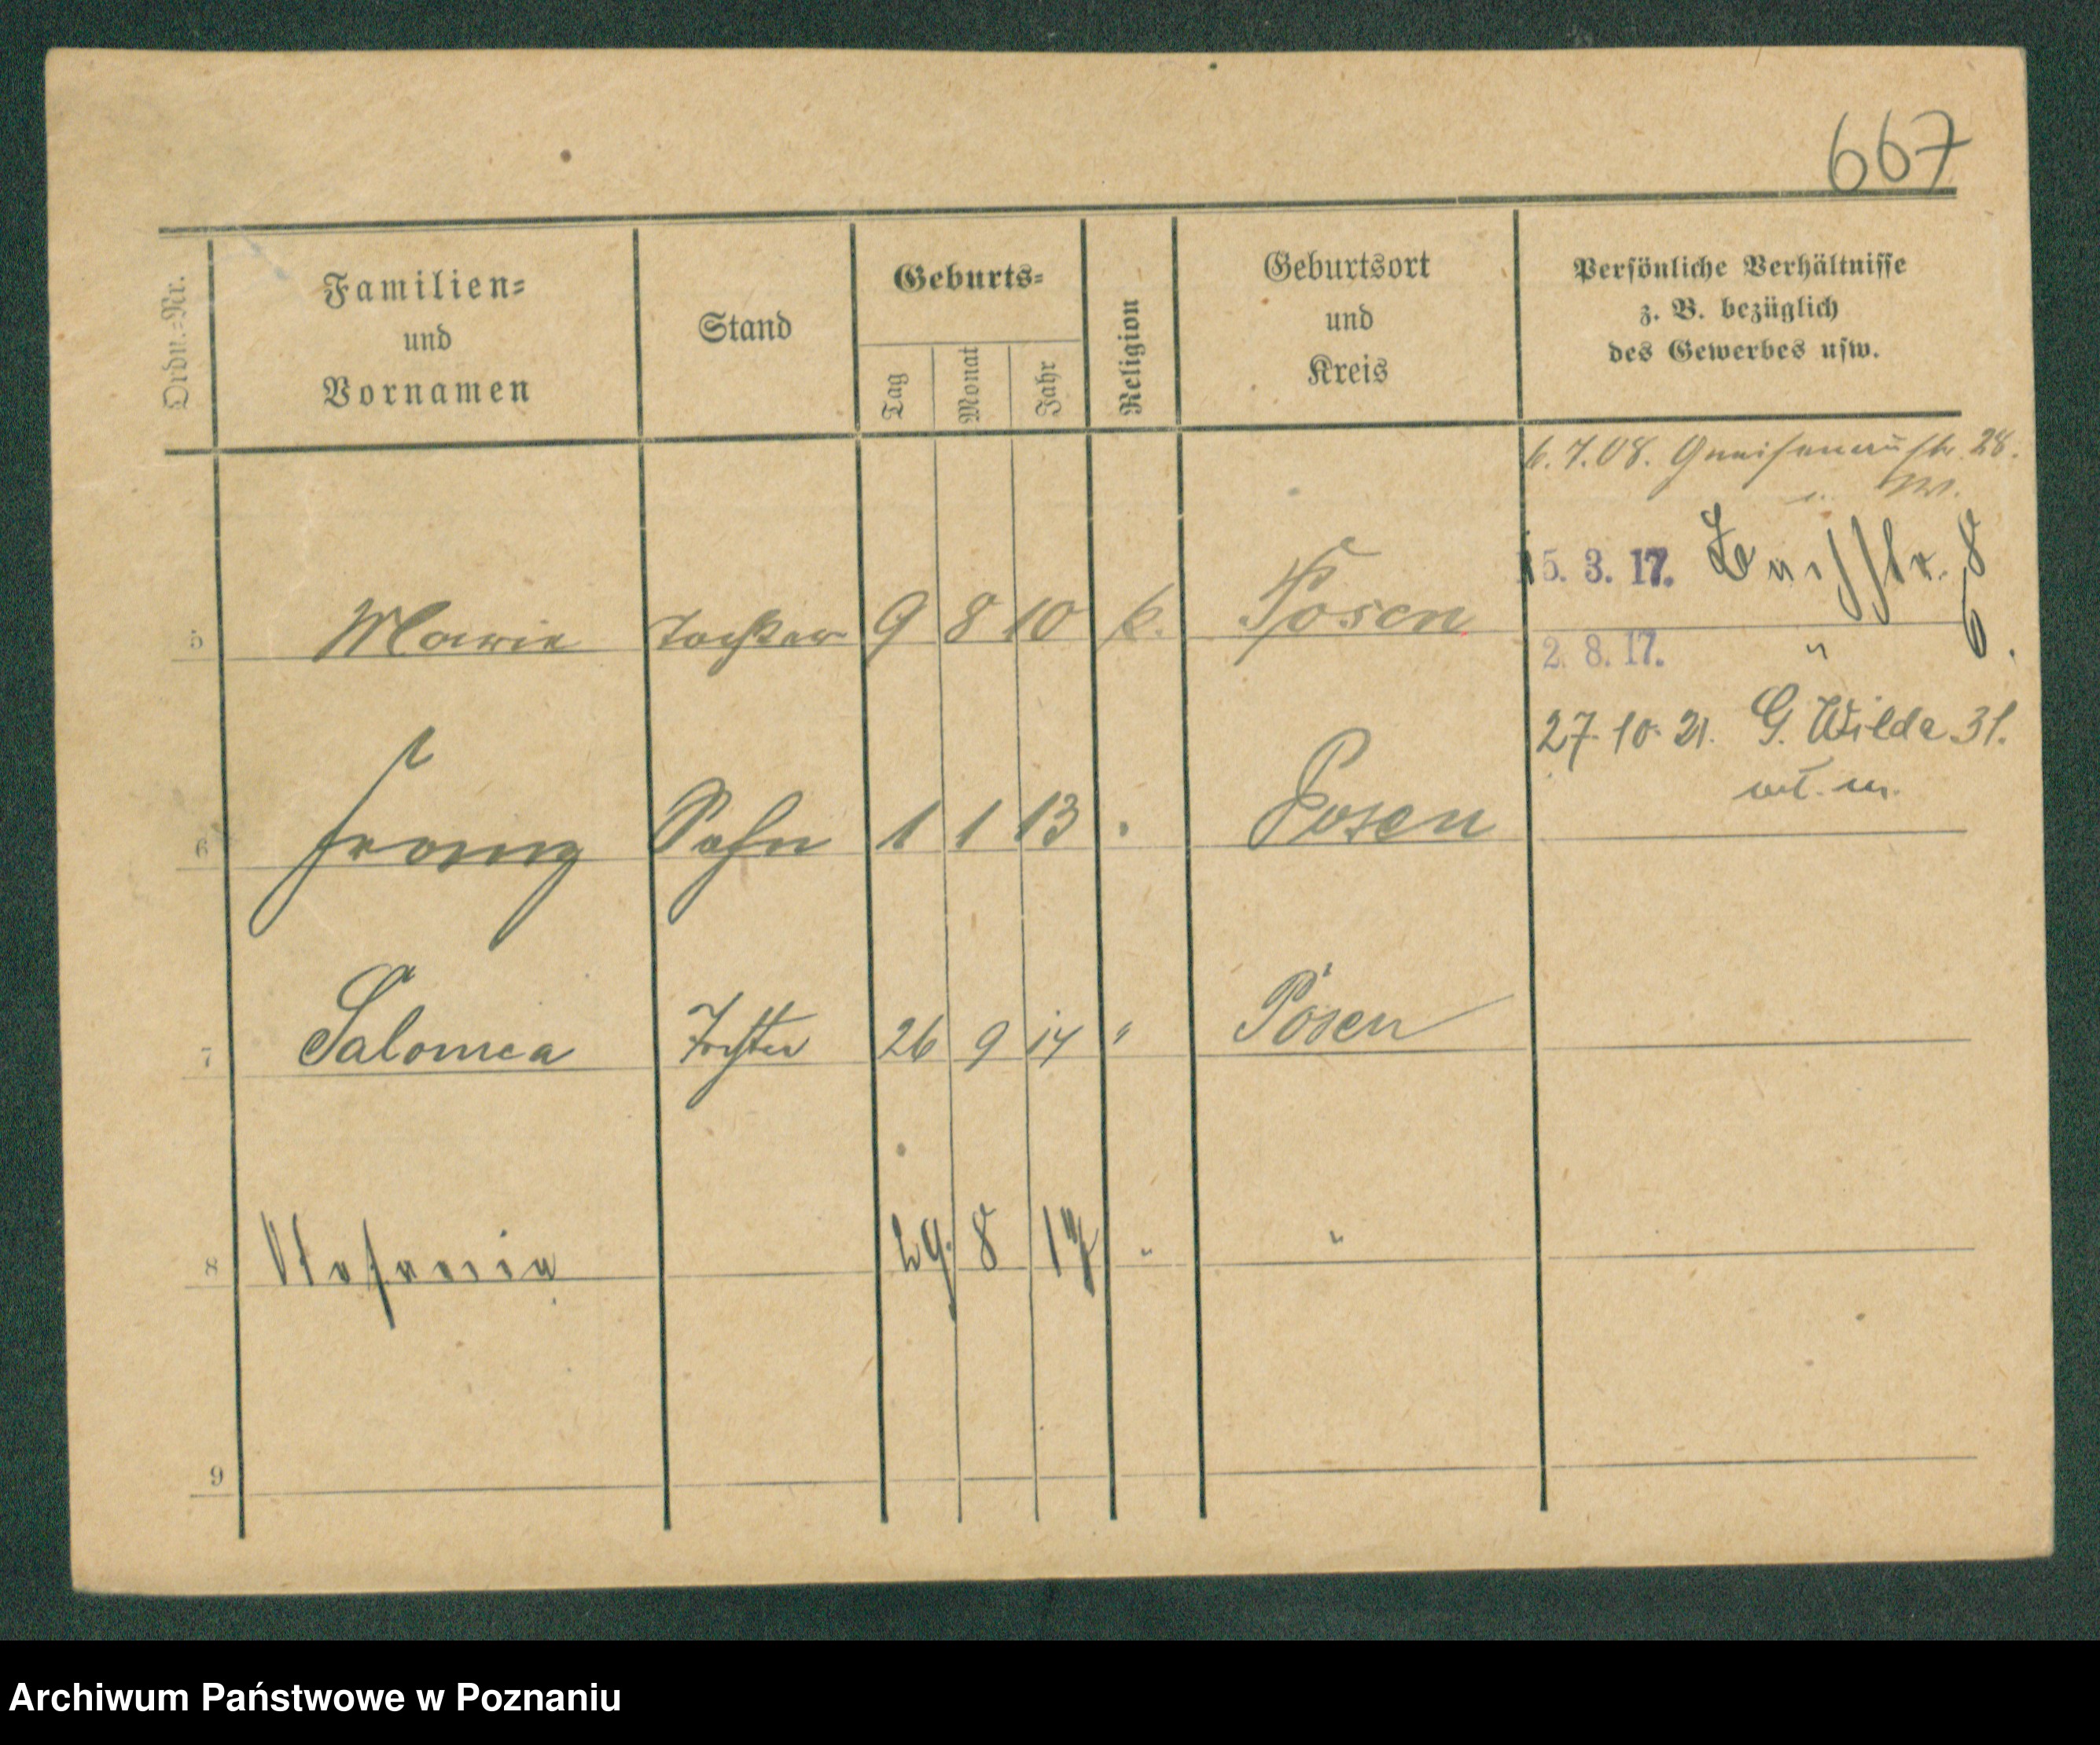 667
Ordn.-Nr.
Familien-
und
Vornamen
Stand
Geburts-
Tag
Monat
Jahr
Religion
Geburtsort
und
Kreis
Persönliche Verhältnisse
z. B. bezüglich
des Gewerbes usw.
6.7.08. Gneisenaustr. 28.
5. 3. 17.
5 Marie Tochter 9 8 10 k. Posen
2. 8. 17. "
27. 10. 21. G. Wilda 31.
6 Franz Sohn 1 1 13 Posen
7 Salomea Tochter 26 9 14 " Posen
8 Stefania 29. 8 17 " "
9
Archiwum Państwowe w Poznaniu